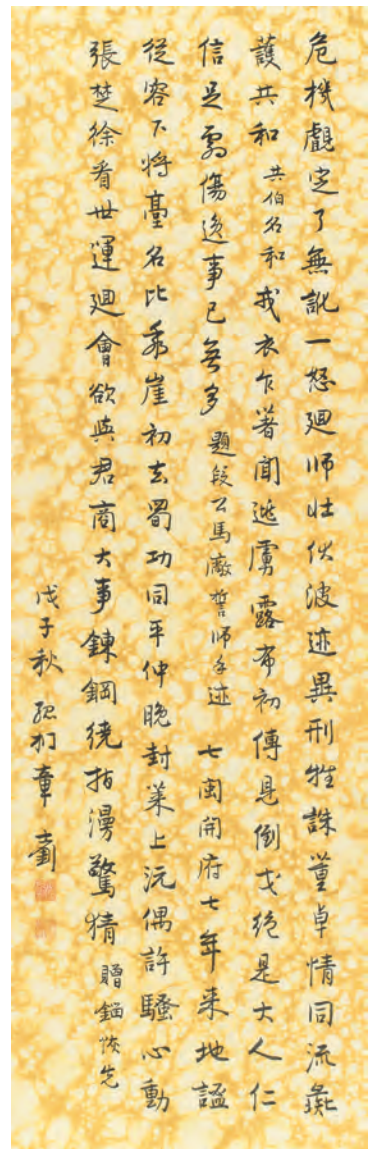 危機觀定了無訛一怒廻師壯伏波迹異刑牲誅董卓情同流彘
護共和 共伯名和 戎衣乍著聞逃虜露布初傳見倒戈絕是大人仁
信足傷逸事已無多 題段公馬廠誓師手迹 七閩開府七年來地謐
從容下將臺名比乖崖初去蜀功同平仲晚封萊上沅偶許騷心動
張楚徐看世運廻會欲與君商大事鍊鋼繞指漫驚猜 贈
戊子秋 孤桐章士釗